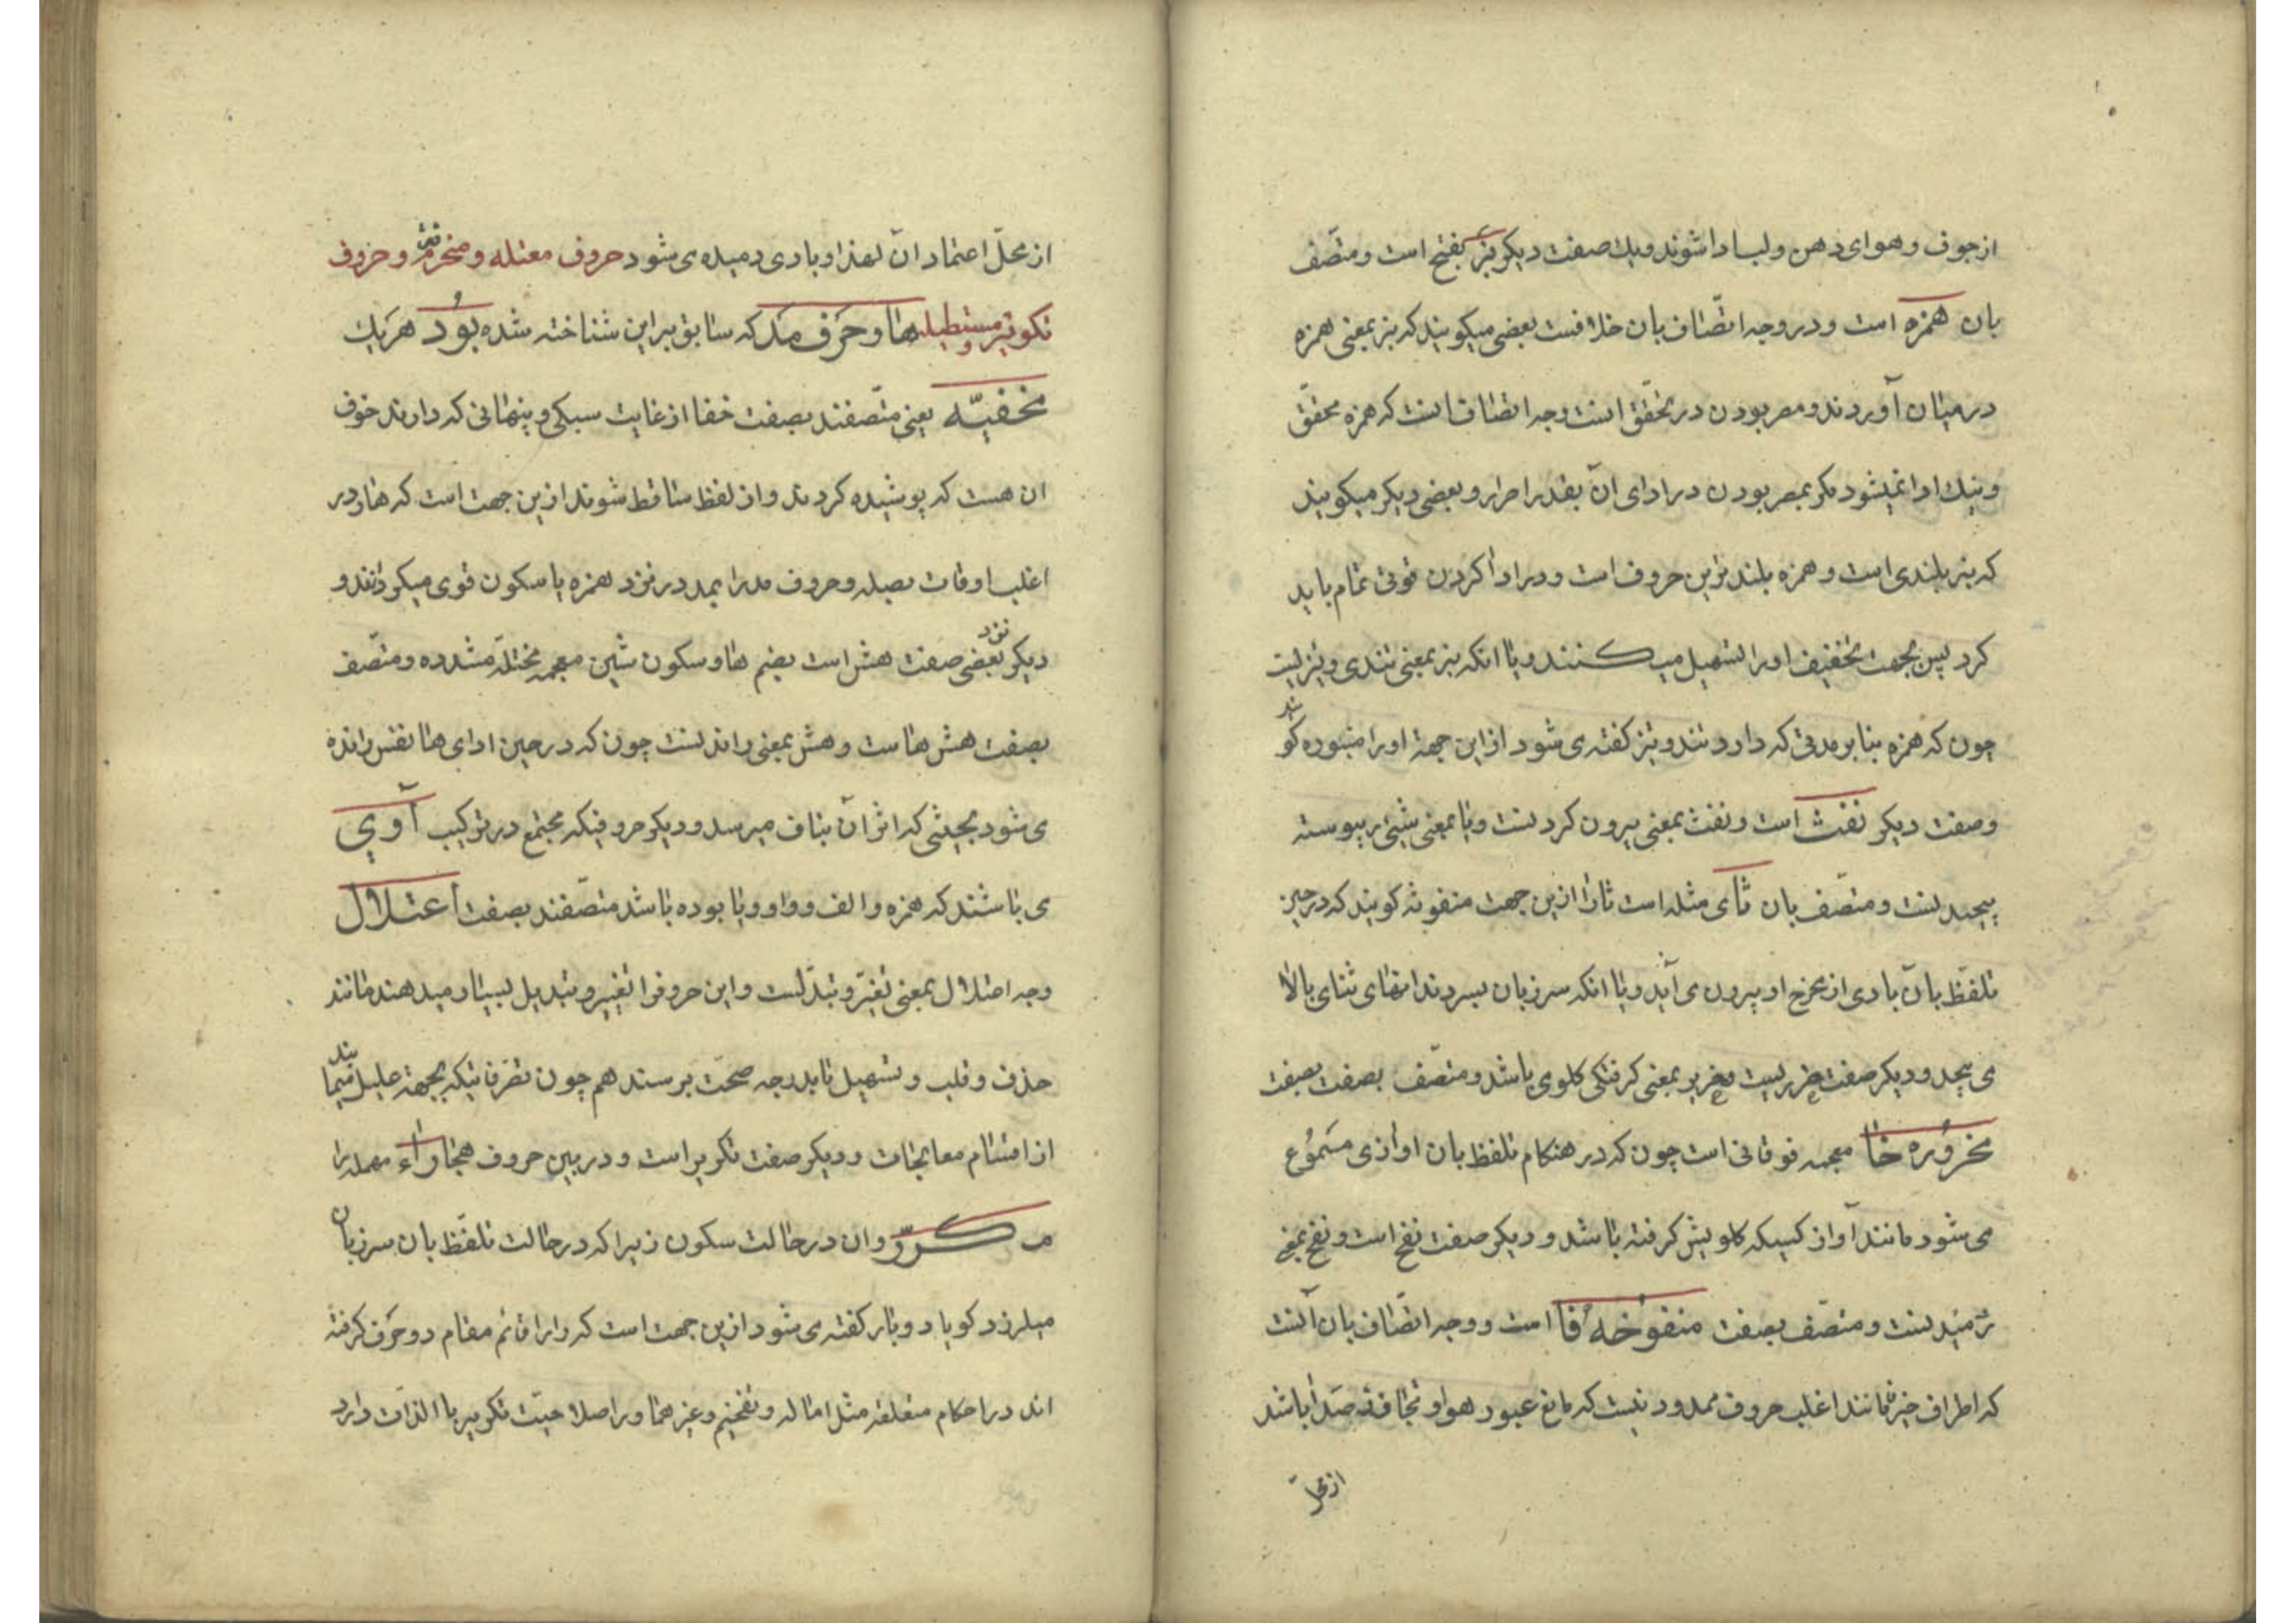 از جوف و هوای دهن و لب ادا شوند و یك صفت دیکر نبز بفتح است و متّصف
بان همزه است و در وجه اتّصاف بان خلافست بعضی میکویند که نبز بمعنی همزه
در میان آوردند و مصر بودن در تحقّق است وجه اتصاف انست که همزه محقّق
و نیك ادا نمیشود مکر بمصر بودن در ادای آن بقدر احرار و بعضی دیکر میکویند
که نبز بلندی است و همزه بلندترین حروف است و در ادا کردن قوتی تمام باید
کرد پس بجهت تخفیف او را تسهیل میکنند و یا انکه نبز بمعنی تندی و تیزیست
چون که همزه بنا بر مدتی که دارد تند و تیز کفته می شود از این جهة او را منبوره کو
یند
وصفت دیکر نفث است و نفث بمعنی بیرون کردنست و یا بمعنی شیئی بر پیوسته
پیچیدنست و متصّف بان ثای مثله است ثا را ازین جهت منفوثه کویند که در حین
تلفّظ بان بادی از مخرج او بیرون می آید و یا انکه سر زبان بسر دندانهای ثنای بالا
می پیچد و دیکر صفت خریریست و خریر بمعنی کرفتکی کلوی باشد و متصّف بصفت بصفت
مخروره خا معجمه فوقانی است چون که در هنکام تلفظ بان اوازی مسموُع
می شود مانند آواز کسیکه کلویش کرفته باشد و دیکر صفت نفخ است و نفخ بمعنی
دمیدنست و متصّف بصفت منفوُخه فا است و وجه اتّصاف بان آنست
که اطراف حیز مانند اغلب حروف ممدود نیست که مانع عبور هوا و تجافئه صدا باشد
از محلّ
از محلّ اعتماد انّ لهذا او بادی دمیده می شود حروف معتله و منحرفه و حروف
تکویر و مستطیله ها و حَرف مَد که سابق بر این شناخته شده بوُد هر یك
مخفیّه یعنی متّصفند بصفت خفا از غایت سبکی و پنهانی که دارند خوف
ان هست که پوشیده کردند و از لفظ ساقط شوند ازین جهت است که ها و در
اغلب اوقات بصله و حروف مد را بمد در نزد همزه یا سکون قوی میکردانند و
دیکر نزد بعضی صفت هش است بضم ها و سکون شین معجمه مختلّه مشدده و متّصف
بصفت هش ها ست و هش بمعنی راندنست چون که در حین ادای ها نفس رانده
می شود بحیثی که اثر آن بناف میرسد و دیکر حروفیکه مجتمع در ترکیب آوی
می باشند که همزه و الف و واو و یا بوده باشد متصّفند بصفت اعتلال
وجه اعتلال بمعنی تغیّر و تبدّلست و این حروف را تغییر و تبدیل بسیار میدهند مانند
حذف و قلب و تسهیل تا بدرجه صحّت برسند هم چون تصّرفاتیکه بجهة علیل نمایند
از اقسام معالجات و دیکر صفت تکریر است و در بین حروف هجا راء مهمله را
مکرّر و ان در حالت سکون زیرا که در حالت تلفّظ بان سر زبان
میلرزد کویا دو بار کفته می شود ازین جهت است که را را قائم مقام دو حَرف کرفته
اند در احکام متعلقه مثل اماله و تفخیم و غیرهما و را صلاحیّت تکویر با الذات دارد